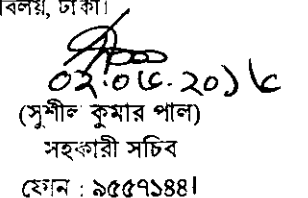 বিলয়, ঢাকা।
০২.০৫.২০১৫
(সুশীল কুমার পাল)
সহকারী সচিব
ফোন : ৯৫৫৭১৪৪।